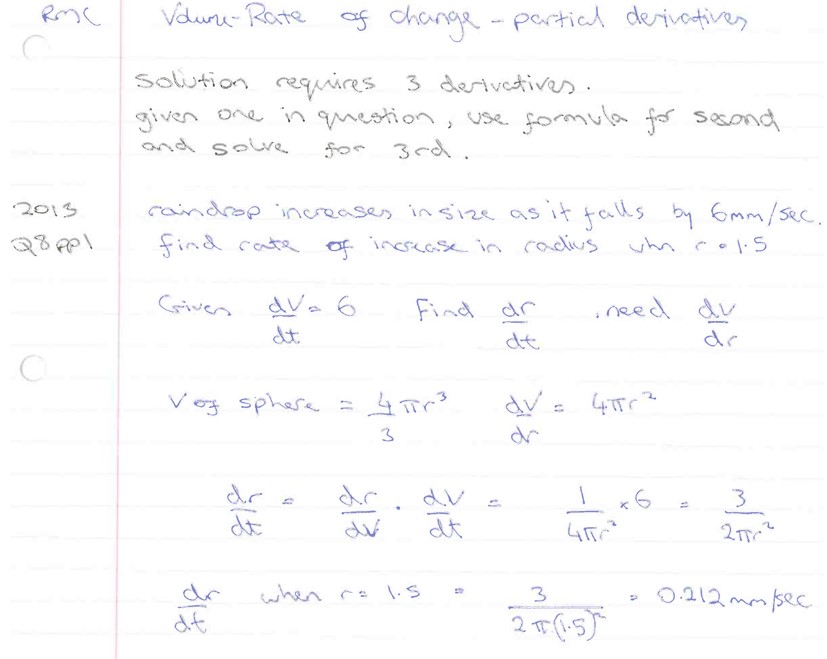 RMC Volume-Rate of change - partial derivatives
solution requires 3 derivatives.
given one in question, use formula for second
and solve for 3rd.
2013 raindrop increases in size as it falls by 6mm/sec.
Q8 pp1 find rate of increase in radius whn r = 1.5
Given dV/dt = 6 Find dr/dt , need dV/dr
V of sphere = 4/3 πr³ dV/dr = 4πr²
dr/dt = dr/dV . dV/dt = 1/4πr² × 6 = 3/2πr²
dr/dt when r = 1.5 = 3/2π(1.5)² = 0.212 mm/sec